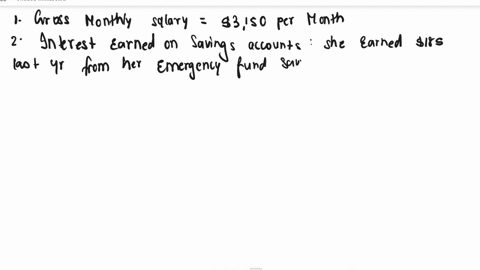 1. Gross Monthly salary = $3,150 per Month
2. Interest Earned on Savings accounts : she Earned
last yr from her Emergency fund sav